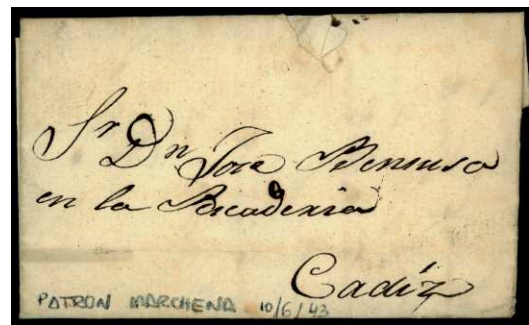 Sr Dn Jose Bensusa
en la Pescaderia
Cadiz
PATRON MARCHENA 10/6/43